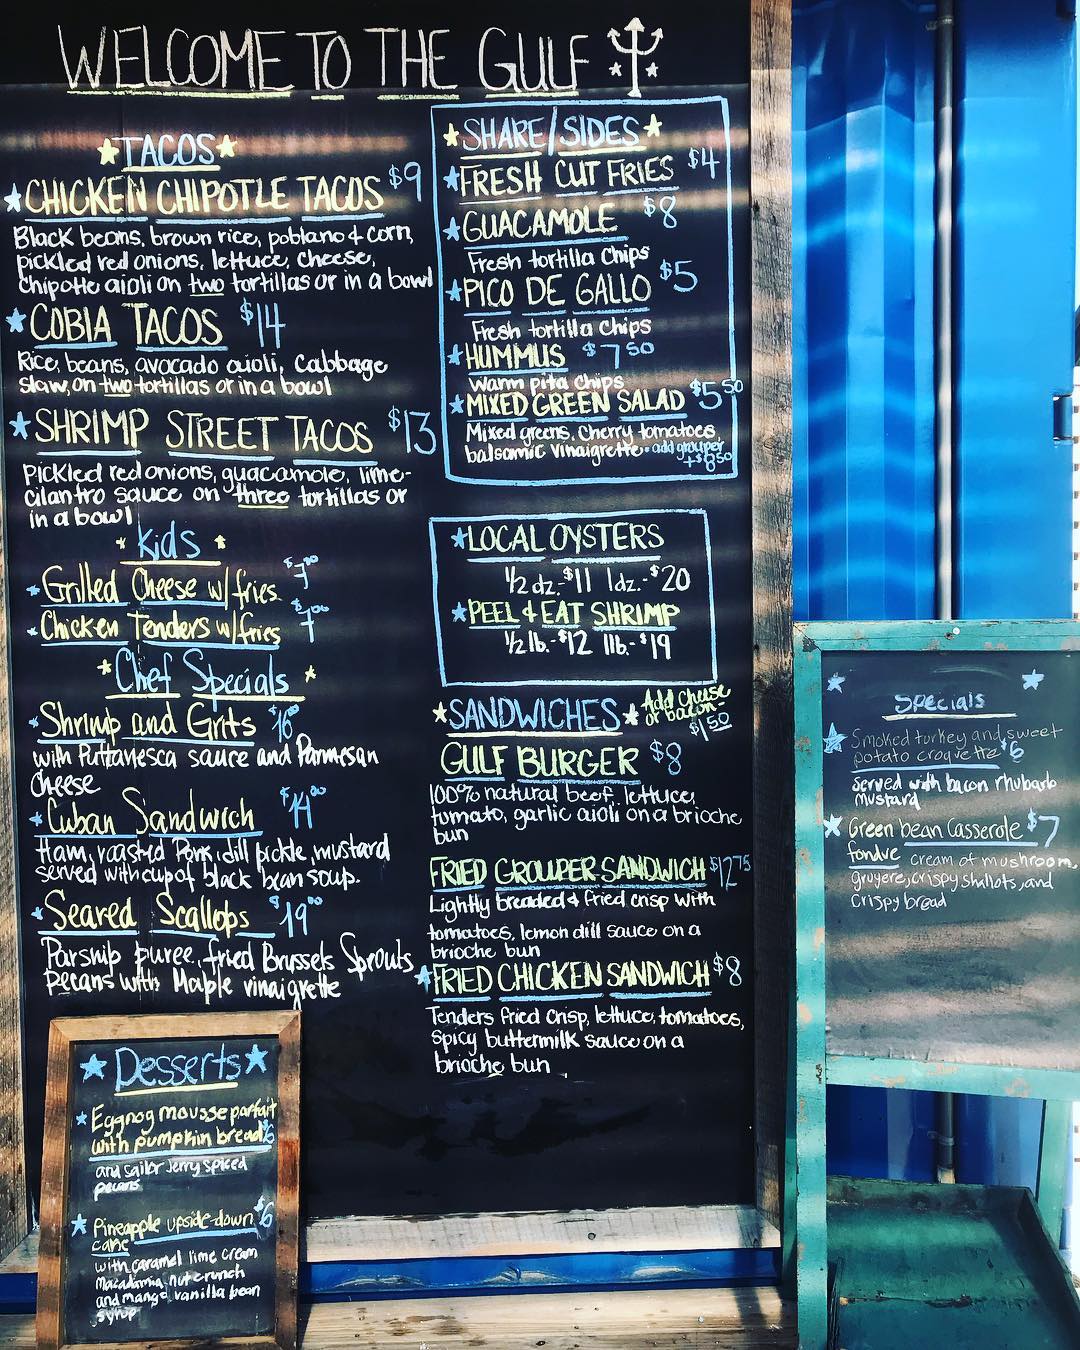 WELCOME TO THE GULF
TACOS
CHICKEN CHIPOTLE TACOS $9
Black beans, brown rice, poblano & corn,
pickled red onions, lettuce, cheese,
Chipotle aioli on two tortillas or in a bowl
COBIA TACOS $14
Rice, beans, avocado aioli, Cabbage
slaw, on two tortillas or in a bowl
SHRIMP STREET TACOS $13
Pickled red onions, guacamole, lime-
cilantro sauce on three tortillas or
in a bowl
Kids
Grilled Cheese w/ fries $7.00
Chicken Tenders w/ fries $7.00
Chef Specials
Shrimp and Grits $16
with Puttanesca sauce and Parmesan
Cheese
Cuban Sandwich $14.00
Ham, roasted Pork, dill pickle, mustard
served with cup of black bean soup.
Seared Scallops $19.00
Parsnip puree, fried Brussels Sprouts
Pecans with Maple vinaigrette
SHARE/SIDES
FRESH CUT FRIES $4
GUACAMOLE $8
Fresh tortilla chips
PICO DE GALLO $5
Fresh tortilla chips
HUMMUS $7 50
Warm pita chips
MIXED GREEN SALAD $5 50
Mixed greens, Cherry tomatoes
balsamic vinaigrette - add grouper
+$8 50
LOCAL OYSTERS
1/2 dz.-$11 1dz.-$20
PEEL & EAT SHRIMP
1/2 lb.-$12 1lb.-$19
SANDWICHES Add Cheese
or bacon-
$1.50
GULF BURGER $8
100% natural beef, lettuce,
tomato, garlic aioli on a brioche
bun
FRIED GROUPER SANDWICH $12 75
Lightly breaded & fried crisp with
tomatoes, lemon dill sauce on a
brioche bun
FRIED CHICKEN SANDWICH $8
Tenders fried crisp, lettuce, tomatoes,
spicy buttermilk sauce on a
brioche bun
Desserts
Eggnog mousse parfait
with pumpkin bread $6
and sailor Jerry spiced
pecans
Pineapple upside-down $6
cake
with caramel lime cream
Macadamia nut crunch
and mango vanilla bean
syrup
Specials
Smoked turkey and sweet
potato croquette $6
served with bacon rhubarb
mustard
Green bean Casserole $7
fondue cream of mushroom,
gruyere, crispy shallots, and
crispy bread